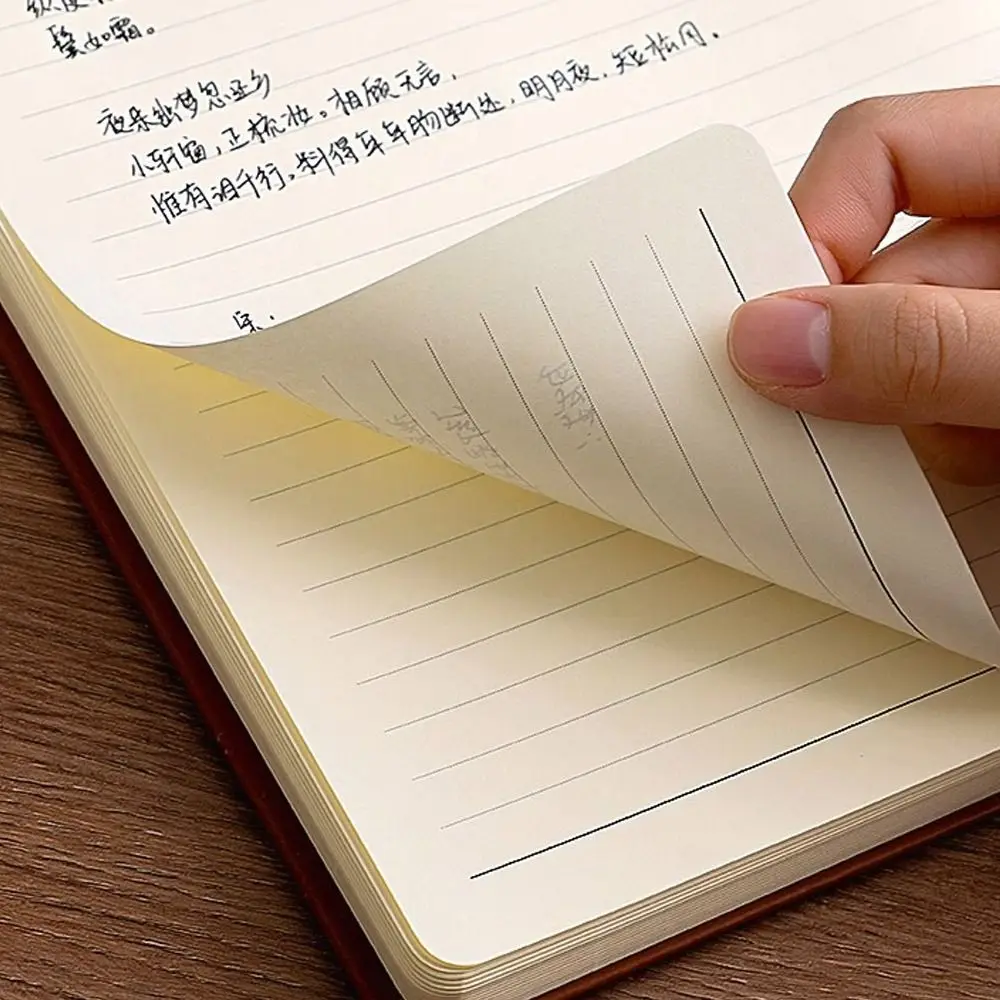 鬓如霜。
夜来幽梦忽还乡
小轩窗,正梳妆。相顾无言,
惟有泪千行。料得年年肠断处,明月夜,短松冈。